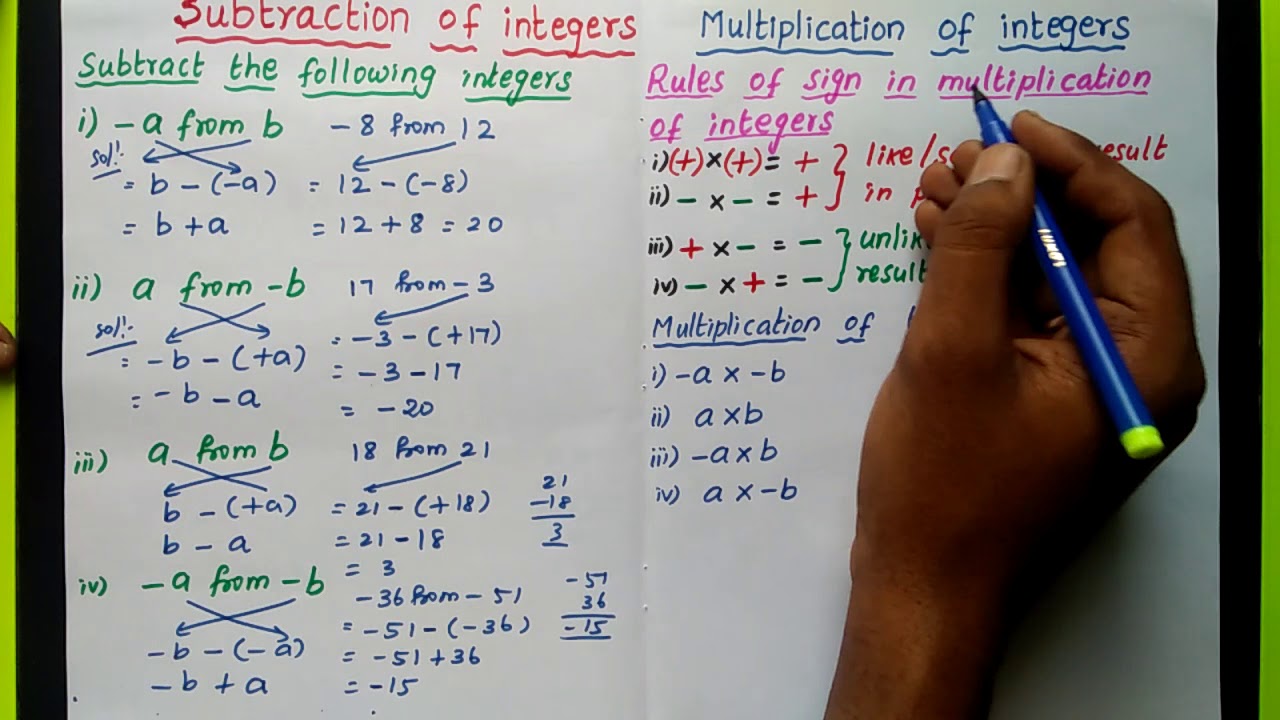 Subtraction of integers
Subtract the following integers
i) -a from b    -8 from 12
Sol:-
= b - (-a)    = 12 - (-8)
= b + a    = 12 + 8 = 20
ii) a from -b    17 from -3
Sol:-
= -b - (+a)    = -3 - (+17)
= -b - a    = -3 - 17
= -20
iii) a from b    18 from 21
b - (+a)    = 21 - (+18)    21
b - a    = 21 - 18    -18
= 3    3
iv) -a from -b    -36 from -51
-b - (-a)    = -51 - (-36)    -51
-b + a    = -51 + 36    36
= -15    -15
Multiplication of integers
Rules of sign in multiplication
of integers
i) (+) × (+) = + } like/ result
ii) - × - = + } in
iii) + × - = - }
iv) - × + = - } result
Multiplication of
i) -a × -b
ii) a × b
iii) -a × b
iv) a × -b